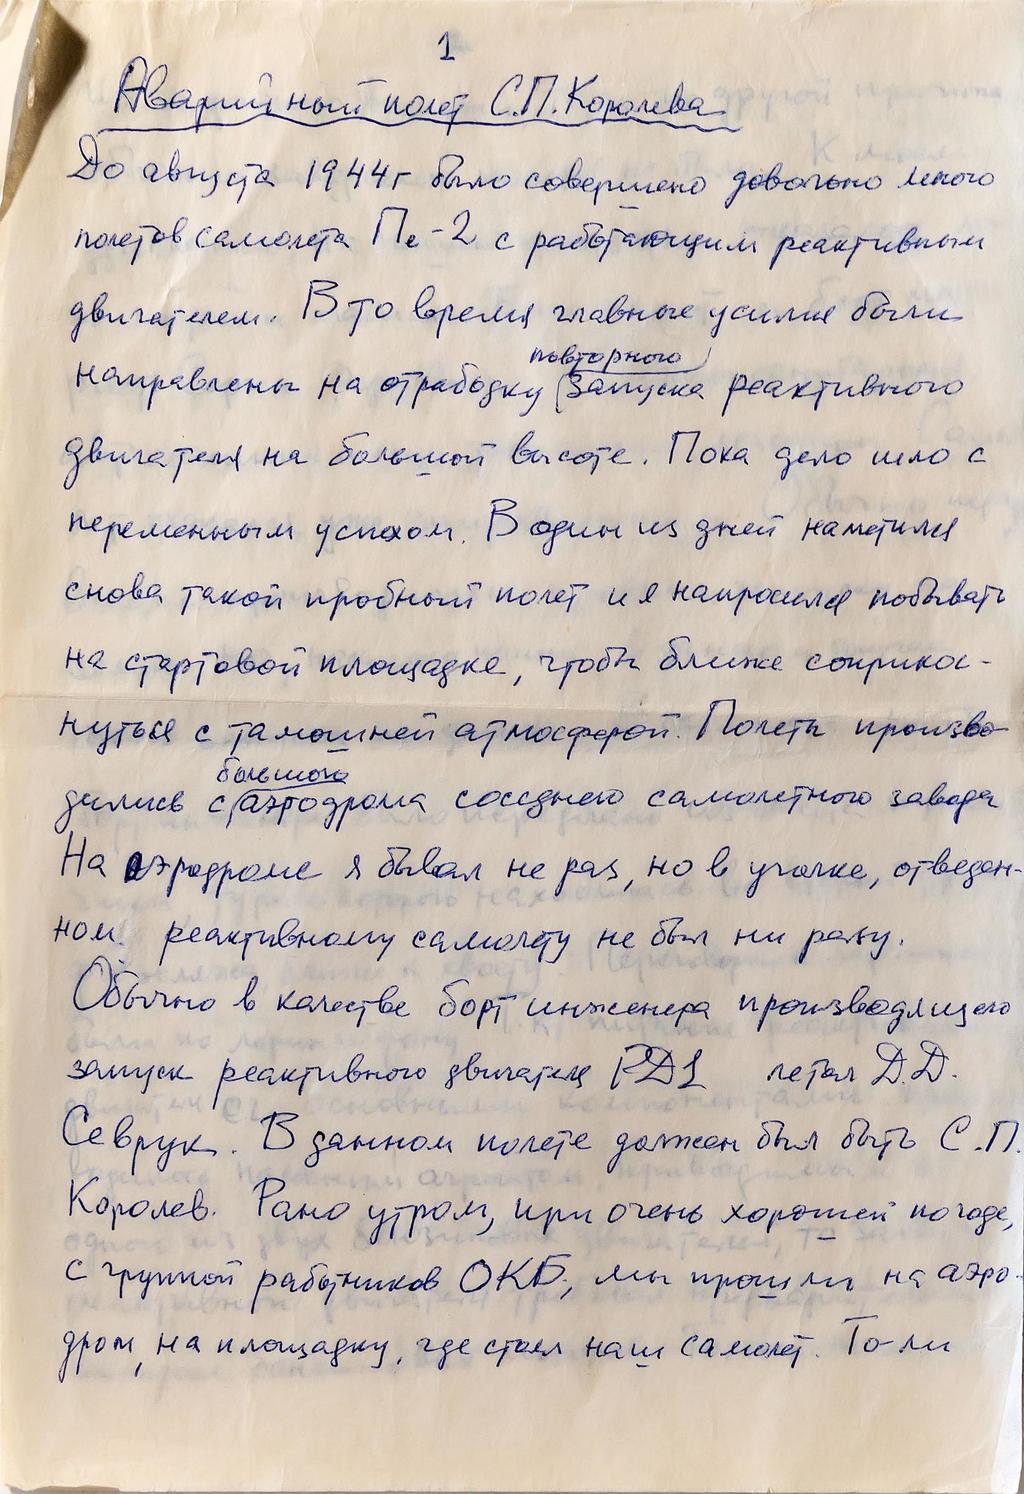 1
Аварийный полет С.П.Королева
До августа 1944г было совершено довольно много
полетов самолета Пе-2 с работающим реактивным
двигателем. В то время главные усилия были
повторного
направлены на отработку запуска реактивного
двигателя на большой высоте. Пока дело шло с
переменным успехом. В один из дней наметился
снова такой пробный полет и я напросился побывать
на стартовой площадке, чтобы ближе соприкос-
нуться с тамошней атмосферой. Полеты произво-
большого
дились с аэродрома соседнего самолетного завода
На аэродроме я бывал не раз, но в уголке, отведен-
ном реактивному самолету не был ни разу.
Обычно в качестве борт инженера производящего
запуск реактивного двигателя РД1 летал Д.Д.
Севрук. В данном полете должен был быть С.П.
Королев. Рано утром, при очень хорошей погоде,
с группой работников ОКБ, мы прошли на аэро-
дром, на площадку, где стоял наш самолет. То-ли